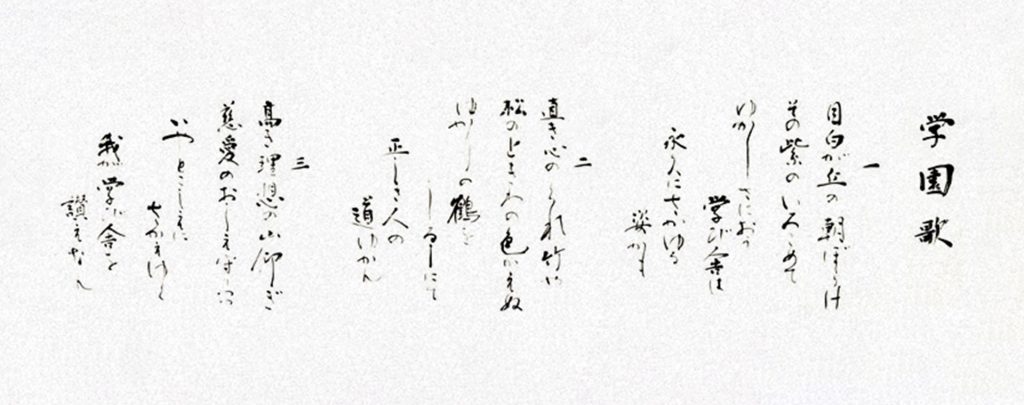 学園歌
一
目白が丘の朝ぼらけ
その紫のいろこめて
ゆかしさにおう
学び舎は
永久にさかゆる
姿かも
二
直き心のくれ竹に
松のときわの色かえぬ
の鶴を
しるしにて
正しき人の
道ゆかん
三
高き理想の山仰ぎ
慈愛のおしえ守りつつ
いやとこしえに
さかえゆく
我が学び舎を
讃えなん